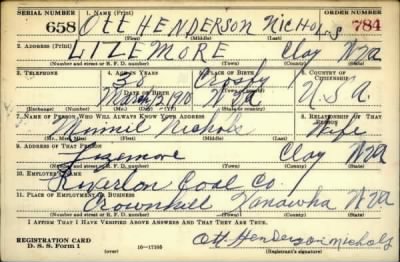 SERIAL NUMBER 1. NAME (Print) ORDER NUMBER
658 OTT HENDERSON NICHOLS 784
2. ADDRESS (Print)
LIZEMORE Clay W Va
(Number and street or R. F. D. number) (Town) (County) (State)
3. TELEPHONE 4. AGE IN YEARS 5. PLACE OF BIRTH 6. COUNTRY OF CITIZENSHIP
DATE OF BIRTH (Town or county)
March 1910 W Va U.S.A.
(Exchange) (Number) (Mo.) (Day) (Yr.) (State or country)
7. NAME OF PERSON WHO WILL ALWAYS KNOW YOUR ADDRESS 8. RELATIONSHIP OF THAT PERSON
Nichols Wife
(Mr., Mrs., Miss) (First) (Middle) (Last)
9. ADDRESS OF THAT PERSON
Lizemore Clay W Va
(Number and street or R. F. D. number) (Town) (County) (State)
10. EMPLOYER'S NAME
Coal Co.
11. PLACE OF EMPLOYMENT OR BUSINESS
Crownhill Kanawha W Va
(Number and street or R. F. D. number) (Town) (County) (State)
I AFFIRM THAT I HAVE VERIFIED ABOVE ANSWERS AND THAT THEY ARE TRUE.
REGISTRATION CARD
D. S. S. Form 1 16—17105 Ott Henderson nichols
(Registrant's signature)